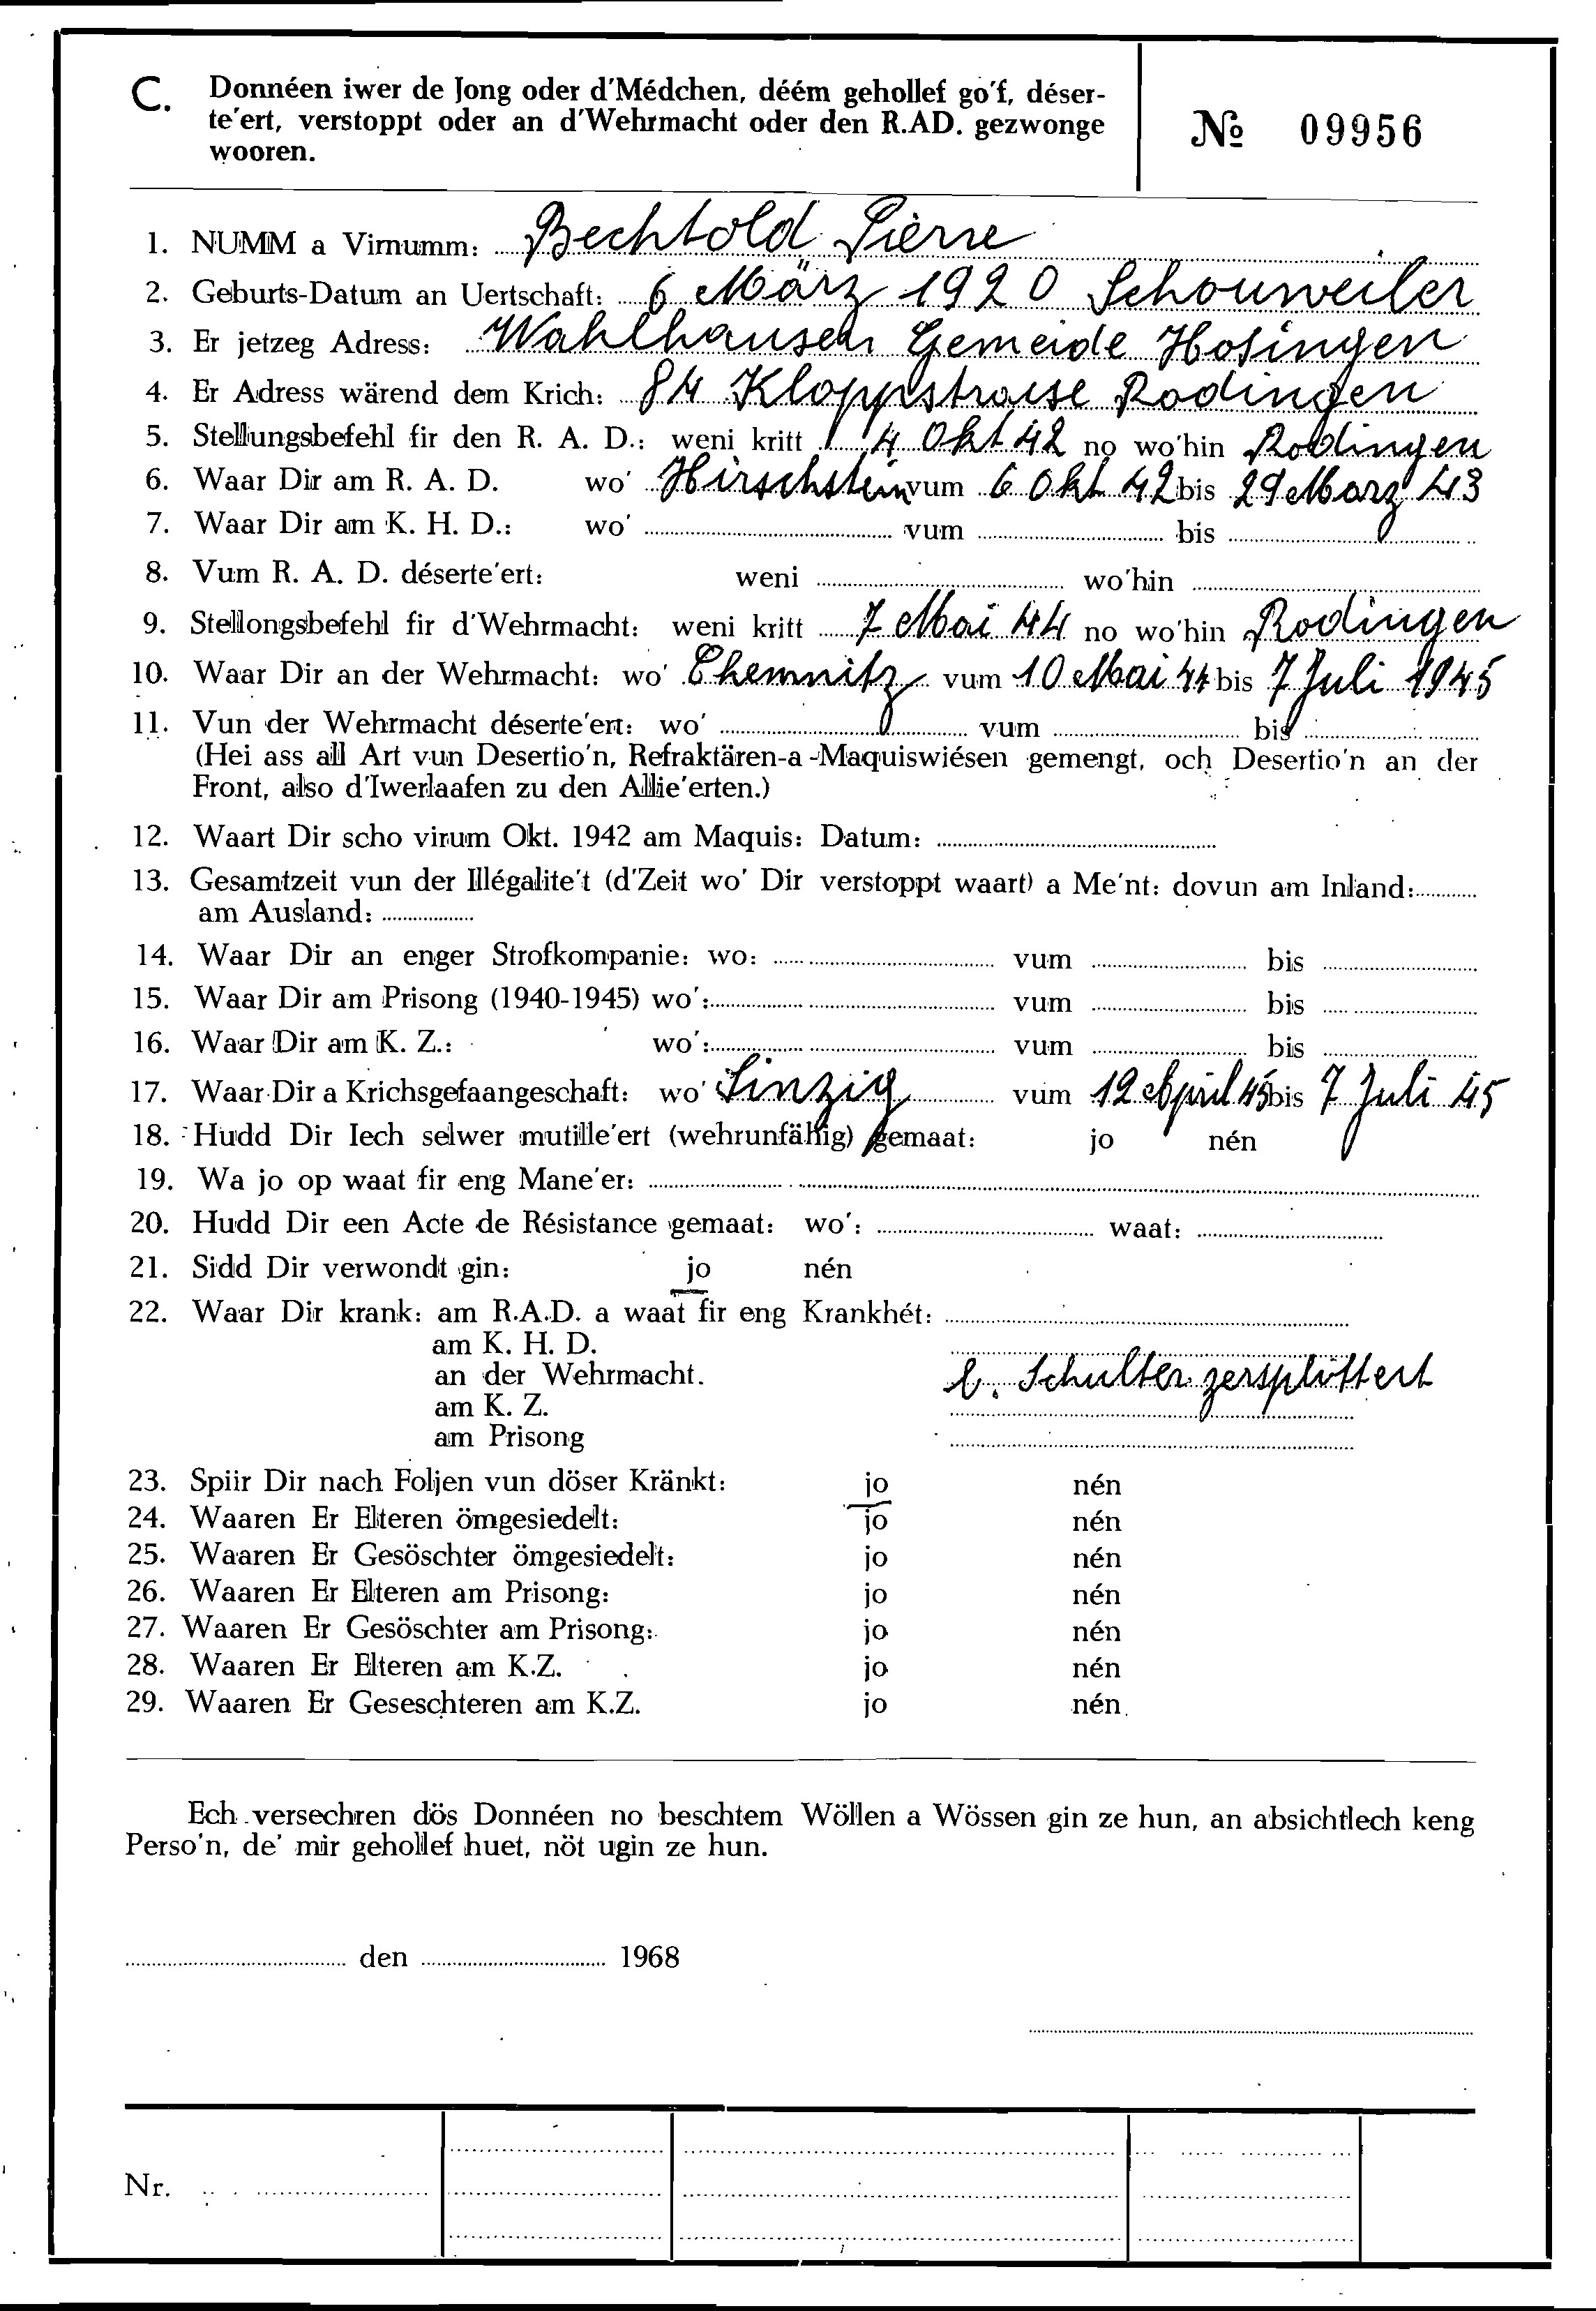 C. Donnéen iwer de Jong oder d'Médchen, déém gehollef go'f, déser-
te'ert, verstoppt oder an d'Wehrmacht oder den R.AD. gezwonge
wooren.
№ 09956
1. NUMM a Virnumm: Bechtold Pierre
2. Geburts-Datum an Uertschaft: 6 März 1920 Schouweiler
3. Er jetzeg Adress: Wahlhausen Gemeide Hosingen
4. Er Adress wärend dem Krich: 84 Kloppstrasse Rodingen
5. Stellungsbefehl fir den R. A. D.: weni kritt 4 Okt 42 no wo'hin Rodingen
6. Waar Dir am R. A. D. wo' Hirschstein vum 6 Okt 42 bis 29 Marz 43
7. Waar Dir am K. H. D.: wo' vum bis
8. Vum R. A. D. déserte'ert: weni wo'hin
9. Stellongsbefehl fir d'Wehrmacht: weni kritt 7 Mai 44 no wo'hin Rodingen
10. Waar Dir an der Wehrmacht: wo' Chemnitz vum 10 Mai 44 bis 7 Juli 1945
11. Vun der Wehrmacht déserte'ert: wo' vum bis
(Hei ass all Art vun Desertio'n, Refraktären-a-Maquiswiésen gemengt, och Desertio'n an der
Front, also d'Iwerlaafen zu den Allie'erten.)
12. Waart Dir scho virum Okt. 1942 am Maquis: Datum:
13. Gesamtzeit vun der Illégalite't (d'Zeit wo' Dir verstoppt waart) a Me'nt: dovun am Inland:
am Ausland:
14. Waar Dir an enger Strofkompanie: wo: vum bis
15. Waar Dir am Prisong (1940-1945) wo': vum bis
16. Waar Dir am K. Z.: wo': vum bis
17. Waar Dir a Krichsgefaangeschaft: wo' Sinzig vum 12 April 45 bis 7 Juli 45
18. Hudd Dir Iech selwer mutille'ert (wehrunfähig) gemaat: jo nén
19. Wa jo op waat fir eng Mane'er:
20. Hudd Dir een Acte de Résistance gemaat: wo': waat:
21. Sidd Dir verwondt gin: jo nén
22. Waar Dir krank: am R.A.D. a waat fir eng Krankhét:
am K. H. D.
an der Wehrmacht. l. Schulter zersplittert
am K. Z.
am Prisong
23. Spiir Dir nach Foljen vun döser Kränkt: jo nén
24. Waaren Er Elteren ömgesiedelt: jo nén
25. Waaren Er Gesöschter ömgesiedelt: jo nén
26. Waaren Er Elteren am Prisong: jo nén
27. Waaren Er Gesöschter am Prisong: jo nén
28. Waaren Er Elteren am K.Z. jo nén
29. Waaren Er Geseschteren am K.Z. jo nén
Ech versechren dös Donnéen no beschtem Wöllen a Wössen gin ze hun, an absichtlech keng
Perso'n, de' mir gehollef huet, nöt ugin ze hun.
den 1968
Nr.